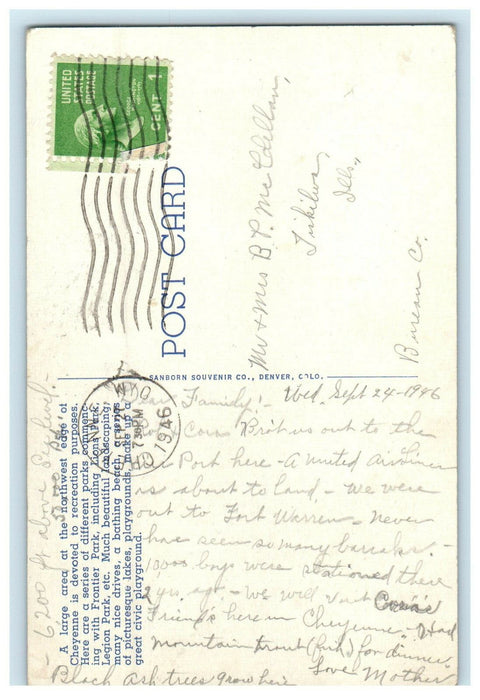 UNITED
STATES
POSTAGE
1 CENT 1
POST CARD
Mr & Mrs B. P. McClellan,
Tiskilwa,
Ills.,
Bureau Co.
SANBORN SOUVENIR CO., DENVER, COLO.
WYO.
SEP
730 PM
1946
A large area at the northwest edge of
Cheyenne is devoted to recreation purposes.
Here are a series of different parks commenc-
ing with Frontier Park, including Lions Park,
Legion Park, etc. Much beautiful landscaping,
many nice drives, a bathing beach, a series
of picturesque lakes, playgrounds, make up a
great civic playground.
6200 ft above Sea level.
Wed, Sept 24-1946
Family!-
Cora Brit us out to the
Port here - A United Airliner
as about to land. - We were
out to Fort Warren. Never
have seen so many barraks.-
000 boys were stationed there
2 yrs. ago. - We will visit Cora's
Friends here in Cheyenne. Had
mountain trout (fish) for dinner.
Love Mother
Black Ash trees grow here